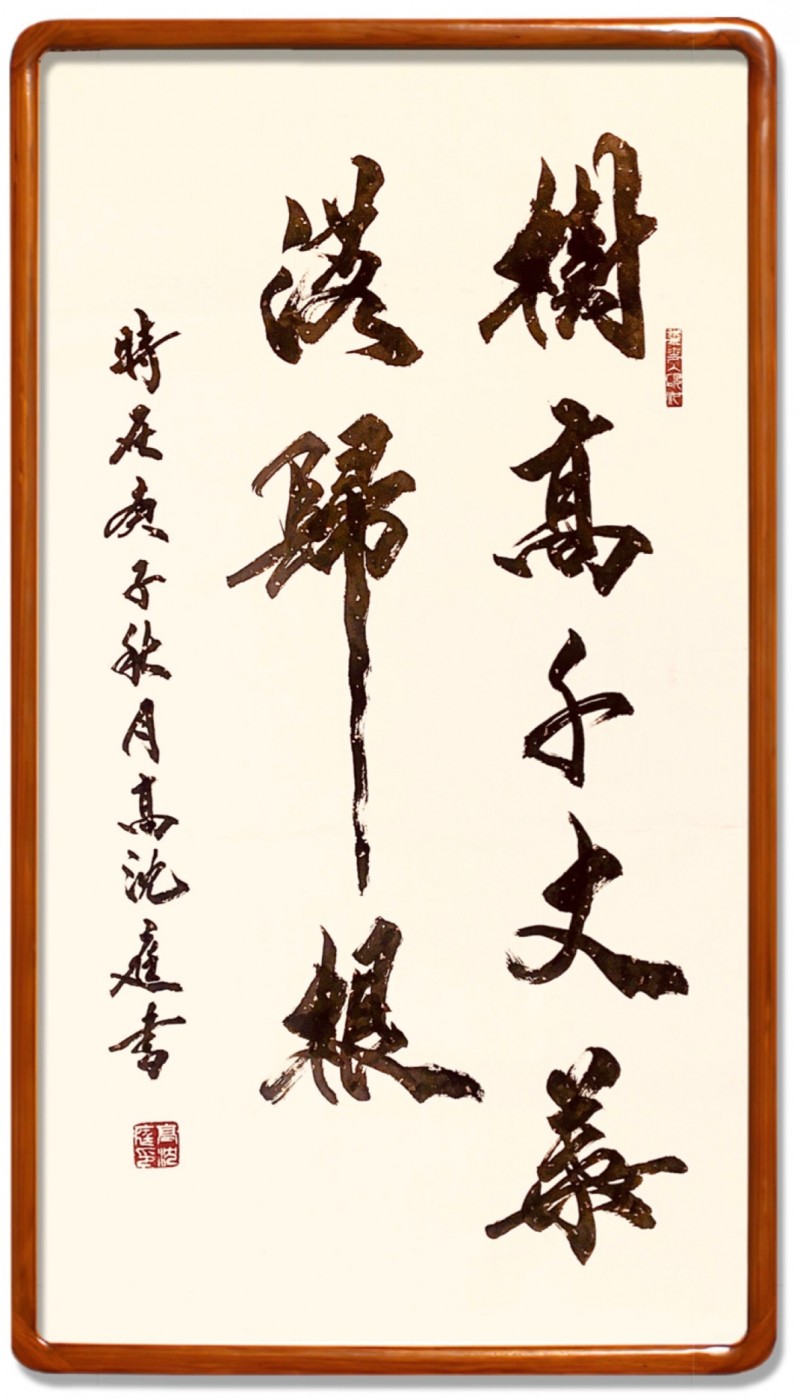 樹高千丈葉
落歸根
時在庚子秋月高沈庭書
高沈
庭印